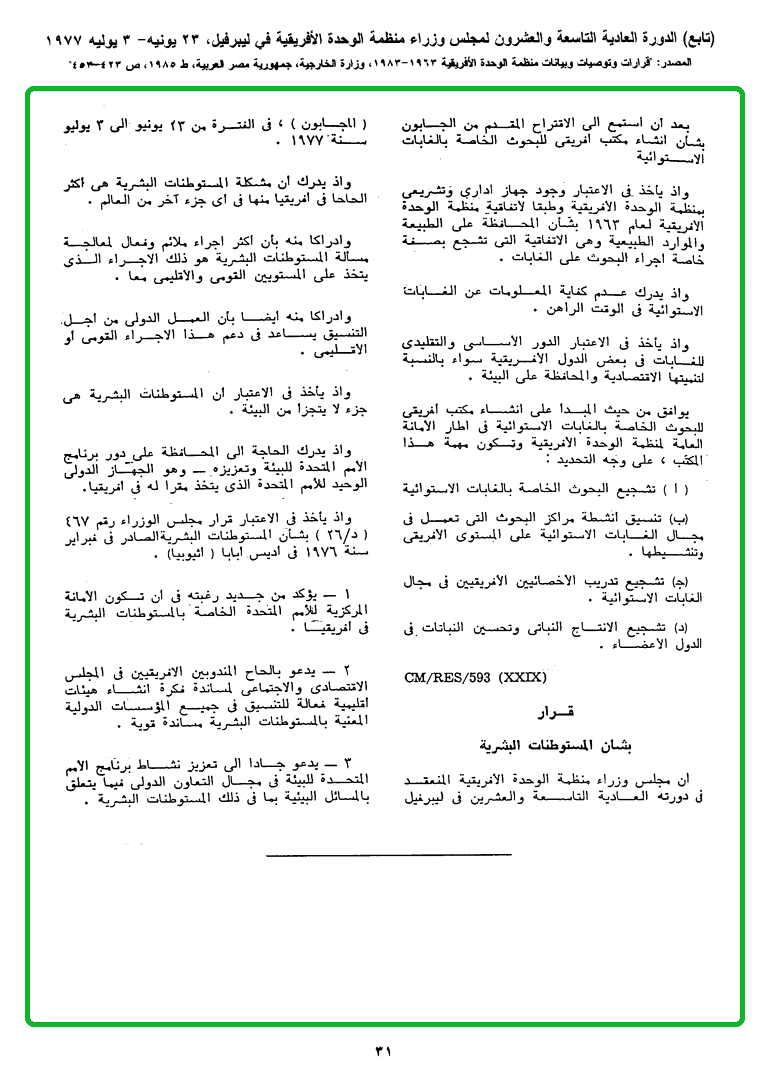 (تابع) الدورة العادية التاسعة والعشرون لمجلس وزراء منظمة الوحدة الأفريقية في ليبرفيل، ٢٣ يونيه- ٣ يوليه ١٩٧٧
المصدر: "قرارات وتوصيات وبيانات منظمة الوحدة الأفريقية ١٩٦٣-١٩٨٣، وزارة الخارجية، جمهورية مصر العربية، ط ١٩٨٥، ص ٤٢٣-٤٥٣"
بعد أن استمع الى الاقتراح المقدم من الجابون
بشأن انشاء مكتب أفريقى للبحوث الخاصة بالغابات
الاستوائية
واذ يأخذ فى الاعتبار وجود جهاز ادارى وتشريعى
بمنظمة الوحدة الأفريقية وطبقا لاتفاقية منظمة الوحدة
الأفريقية لعام ١٩٦٣ بشأن المحافظة على الطبيعة
والموارد الطبيعية وهى الاتفاقية التى تشجع بصفة
خاصة اجراء البحوث على الغابات .
واذ يدرك عدم كفاية المعلومات عن الغابات
الاستوائية فى الوقت الراهن .
واذ يأخذ فى الاعتبار الدور الأساسى والتقليدى
للغابات فى بعض الدول الأفريقية سواء بالنسبة
لتنميتها الاقتصادية والمحافظة على البيئة .
يوافق من حيث المبدأ على انشاء مكتب أفريقى
للبحوث الخاصة بالغابات الاستوائية فى اطار الأمانة
العامة لمنظمة الوحدة الأفريقية وتكون مهمة هذا
المكتب ، على وجه التحديد :
( أ ) تشجيع البحوث الخاصة بالغابات الاستوائية
(ب) تنسيق أنشطة مراكز البحوث التى تعمل فى
مجال الغابات الاستوائية على المستوى الأفريقى
وتنشيطها .
(ج) تشجيع تدريب الأخصائيين الأفريقيين فى مجال
الغابات الاستوائية .
(د) تشجيع الانتاج النباتى وتحسين النباتات فى
الدول الأعضاء .
CM/RES/593 (XXIX)
قرار
بشأن المستوطنات البشرية
أن مجلس وزراء منظمة الوحدة الأفريقية المنعقد
فى دورته العادية التاسعة والعشرين فى ليبرفيل
( الجابون ) ، فى الفترة من ٢٣ يونيو الى ٣ يوليو
سنة ١٩٧٧ .
واذ يدرك أن مشكلة المستوطنات البشرية هى أكثر
الحاحا فى أفريقيا منها فى أى جزء آخر من العالم .
وادراكا منه بأن أكثر اجراء ملائم وفعال لمعالجة
مسألة المستوطنات البشرية هو ذلك الاجراء الذى
يتخذ على المستويين القومى والاقليمى معا .
وادراكا منه أيضا بأن العمل الدولى من أجل
التنسيق يساعد فى دعم هذا الاجراء القومى أو
الاقليمى .
واذ يأخذ فى الاعتبار أن المستوطنات البشرية هى
جزء لا يتجزأ من البيئة .
واذ يدرك الحاجة الى المحافظة على دور برنامج
الأمم المتحدة للبيئة وتعزيزه — وهو الجهاز الدولى
الوحيد للأمم المتحدة الذى يتخذ مقرا له فى أفريقيا.
واذ يأخذ فى الاعتبار قرار مجلس الوزراء رقم ٤٦٧
( د/٢٦ ) بشأن المستوطنات البشرية الصادر فى فبراير
سنة ١٩٧٦ فى أديس أبابا ( أثيوبيا) .
١ — يؤكد من جديد رغبته فى أن تكون الأمانة
المركزية للأمم المتحدة الخاصة بالمستوطنات البشرية
فى أفريقيا .
٢ — يدعو بالحاح المندوبين الأفريقيين فى المجلس
الاقتصادى والاجتماعى لمساندة فكرة انشاء هيئات
اقليمية فعالة للتنسيق فى جميع المؤسسات الدولية
المعنية بالمستوطنات البشرية مساندة قوية .
٣ — يدعو جادا الى تعزيز نشاط برنامج الأمم
المتحدة للبيئة فى مجال التعاون الدولى فيما يتعلق
بالمسائل البيئية بما فى ذلك المستوطنات البشرية .
٣١